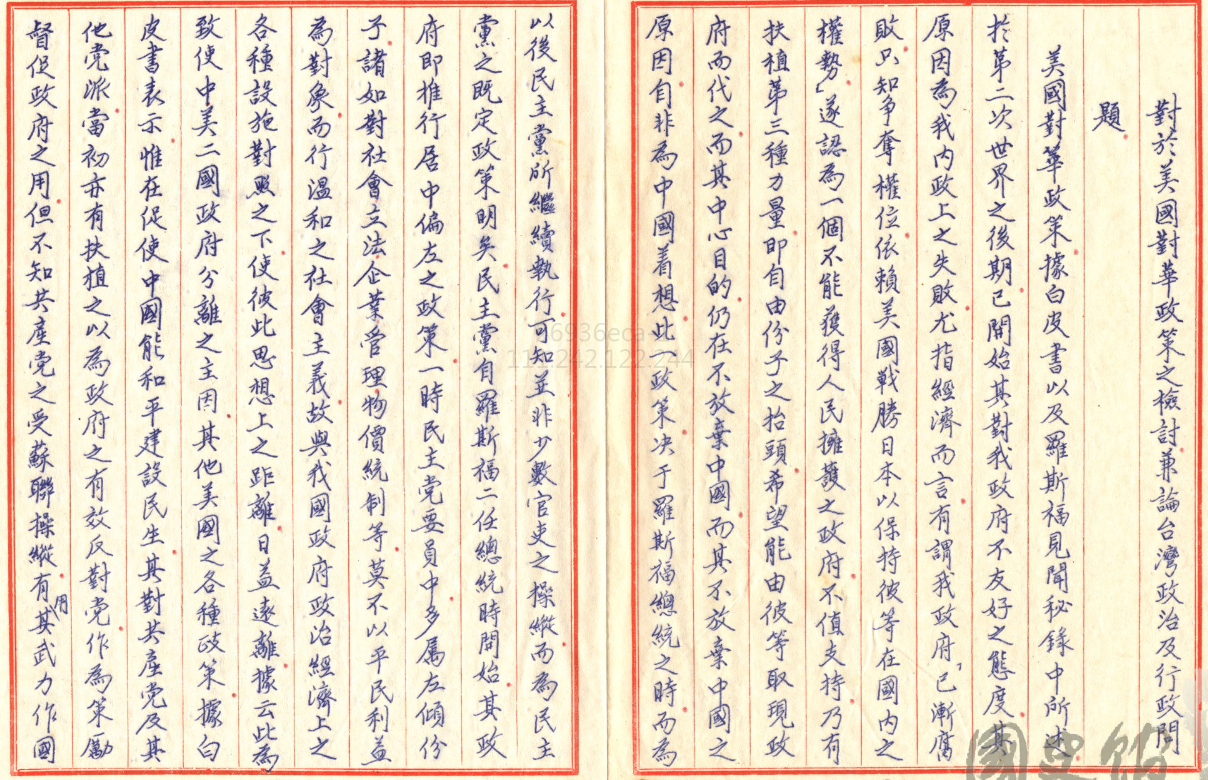 對於美國對華政策之檢討兼論台灣政治及行政問
題
美國對華政策據白皮書以及羅斯福見聞秘錄中所述
於第二次世界之後期已開始其對我政府不友好之態度其
原因為我內政上之失敗尤指經濟而言有謂我政府「已漸腐
敗只知爭奪權位依賴美國戰勝日本以保持彼等在國內之
權勢」遂認為一個不能獲得人民擁護之政府不值支持乃有
扶植第三種力量即自由份子之抬頭希望能由彼等取現政
府而代之而其中心目的仍在不放棄中國而其不放棄中國之
原因自非為中國着想此一政策决于羅斯福總統之時而為
以後民主黨所繼續執行可知並非少數官吏之操縱而為民主
黨之既定政策明矣民主黨自羅斯福二任總統時開始其政
府即推行居中偏左之政策一時民主党要員中多屬左傾份
子諸如對社會立法企業管理物價統制等莫不以平民利益
為對象而行溫和之社會主義故與我國政府政治經濟上之
各種設施對照之下使彼此思想上之距離日益遠離據云此為
致使中美二國政府分離之主因其他美國之各種政策據白
皮書表示惟在促使中國能和平建設民生其對共產党及其
他党派當初亦有扶植之以為政府之有效反對党作為策勵
督促政府之用但不知共產党之受蘇聯操縱有用其武力作國
國史館
6936eca
111.242.122.244